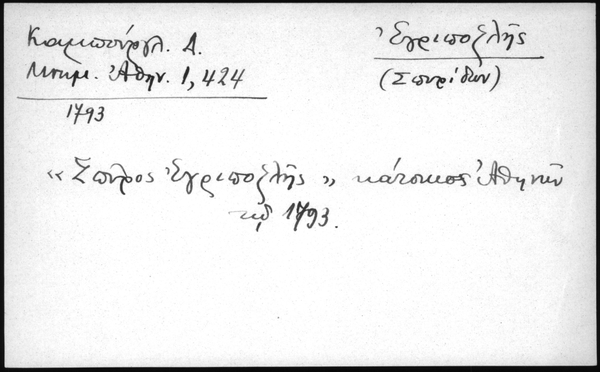 Καμπούρογλ. Δ.
Μνημ. Ἀθην. 1, 424
1793
Ἐγριποζλῆς
(Σπυρίδων)
« Σπύρος Ἐγριποζλῆς » κάτοικος Ἀθηνῶν
τῷ 1793.